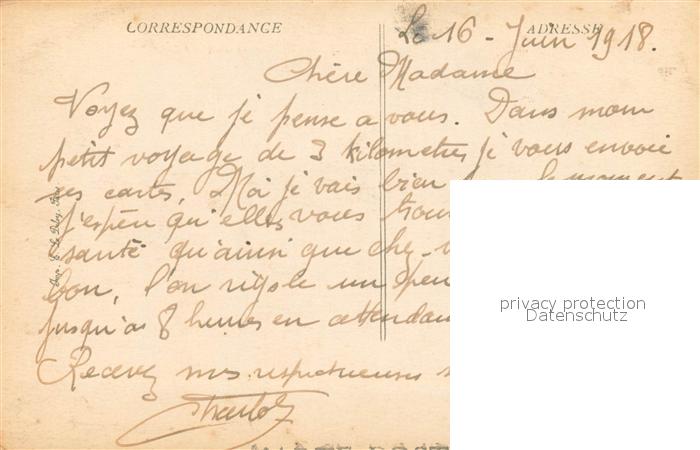 CORRESPONDANCE
ADRESSE
Le 16 - Juin 1918.
Chère Madame
Voyez que je pense a vous. Dans mon
petit voyage de 3 kilometres je vous envoie
ses cartes, Moi je vais bien le moment
j'espèr qu'elles vous trou
santé qu'ainsi que chez
bon, l'on rigole un peu
jusqu'a 8 heures en attendan
Recevez mes respectueuses
Charlot
privacy protection
Datenschutz